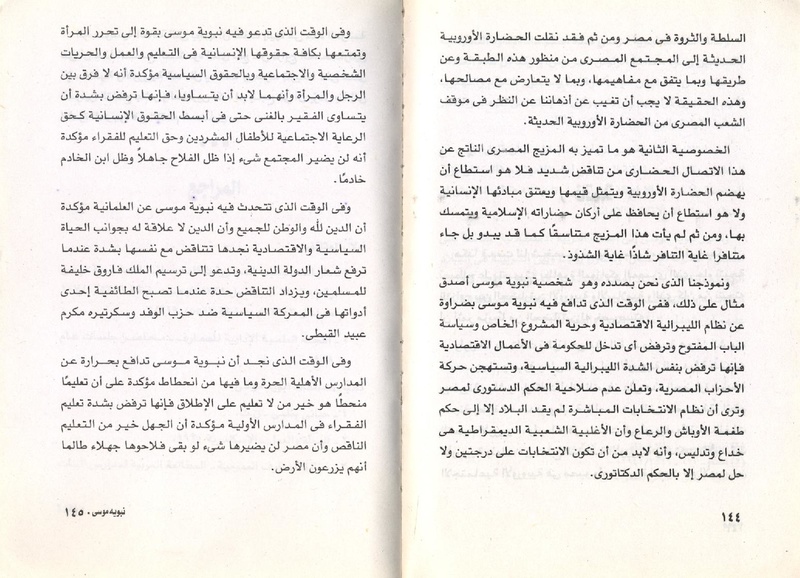 السلطة والثروة فى مصر ومن ثم فقد نقلت الحضارة الأوروبية
الحديثة إلى المجتمع المصرى من منظور هذه الطبقة وعن
طريقها وبما يتفق مع مفاهيمها، وبما لا يتعارض مع مصالحها،
وهذه الحقيقة لا يجب أن تغيب عن أذهاننا عن النظر فى موقف
الشعب المصرى من الحضارة الأوروبية الحديثة.
الخصوصية الثانية هو ما تميز به المزيج المصرى الناتج عن
هذا الاتصال الحضارى من تناقض شديد فلا هو استطاع أن
يهضم الحضارة الأوروبية ويتمثل قيمها ويعتنق مبادئها الإنسانية
ولا هو استطاع أن يحافظ على أركان حضاراته الإسلامية ويتمسك
بها، ومن ثم لم يأت هذا المزيج متناسقًا كما قد يبدو بل جاء
متنافرا غاية التنافر شاذًا غاية الشذوذ.
ونموذجنا الذى نحن بصدده وهو شخصية نبوية موسى أصدق
مثال على ذلك، ففى الوقت الذى تدافع فيه نبوية موسى بضراوة
عن نظام الليبرالية الاقتصادية وحرية المشروع الخاص وسياسة
الباب المفتوح وترفض أى تدخل للحكومة فى الأعمال الاقتصادية
فإنها ترفض بنفس الشدة الليبرالية السياسية، وتستهجن حركة
الأحزاب المصرية، وتعلن عدم صلاحية الحكم الدستورى لمصر
وترى أن نظام الانتخابات المباشرة لم يقد البلاد إلا إلى حكم
طغمة الأوباش والرعاع وأن الأغلبية الشعبية الديمقراطية هى
خداع وتدليس، وأنه لابد من أن تكون الانتخابات على درجتين ولا
حل لمصر إلا بالحكم الدكتاتورى.
١٤٤
وفى الوقت الذى تدعو فيه نبوية موسى بقوة إلى تحرر المرأة
وتمتعها بكافة حقوقها الإنسانية فى التعليم والعمل والحريات
الشخصية والاجتماعية وبالحقوق السياسية مؤكدة أنه لا فرق بين
الرجل والمرأة وأنهما لابد أن يتساويا، فإنها ترفض بشدة أن
يتساوى الفقير بالغنى حتى فى أبسط الحقوق الإنسانية كحق
الرعاية الاجتماعية للأطفال المشردين وحق التعليم للفقراء مؤكدة
أنه لن يضير المجتمع شىء إذا ظل الفلاح جاهلاً وظل ابن الخادم
خادمًا.
وفى الوقت الذى تتحدث فيه نبوية موسى عن العلمانية مؤكدة
أن الدين لله والوطن للجميع وأن الدين لا علاقة له بجوانب الحياة
السياسية والاقتصادية نجدها تتناقض مع نفسها بشدة عندما
ترفع شعار الدولة الدينية، وتدعو إلى ترسيم الملك فاروق خليفة
للمسلمين، ويزداد التناقض حدة عندما تصبح الطائفية إحدى
أدواتها فى المعركة السياسية ضد حزب الوفد وسكرتيره مكرم
عبيد القبطى.
وفى الوقت الذى نجد أن نبوية موسى تدافع بحرارة عن
المدارس الأهلية الحرة وما فيها من انحطاط مؤكدة على أن تعليمًا
منحطًا هو خير من لا تعليم على الإطلاق فإنها ترفض بشدة تعليم
الفقراء فى المدارس الأولية مؤكدة أن الجهل خير من التعليم
الناقص وأن مصر لن يضيرها شىء لو بقى فلاحوها جهلاء طالما
أنهم يزرعون الأرض.
نبويه موسى - ١٤٥